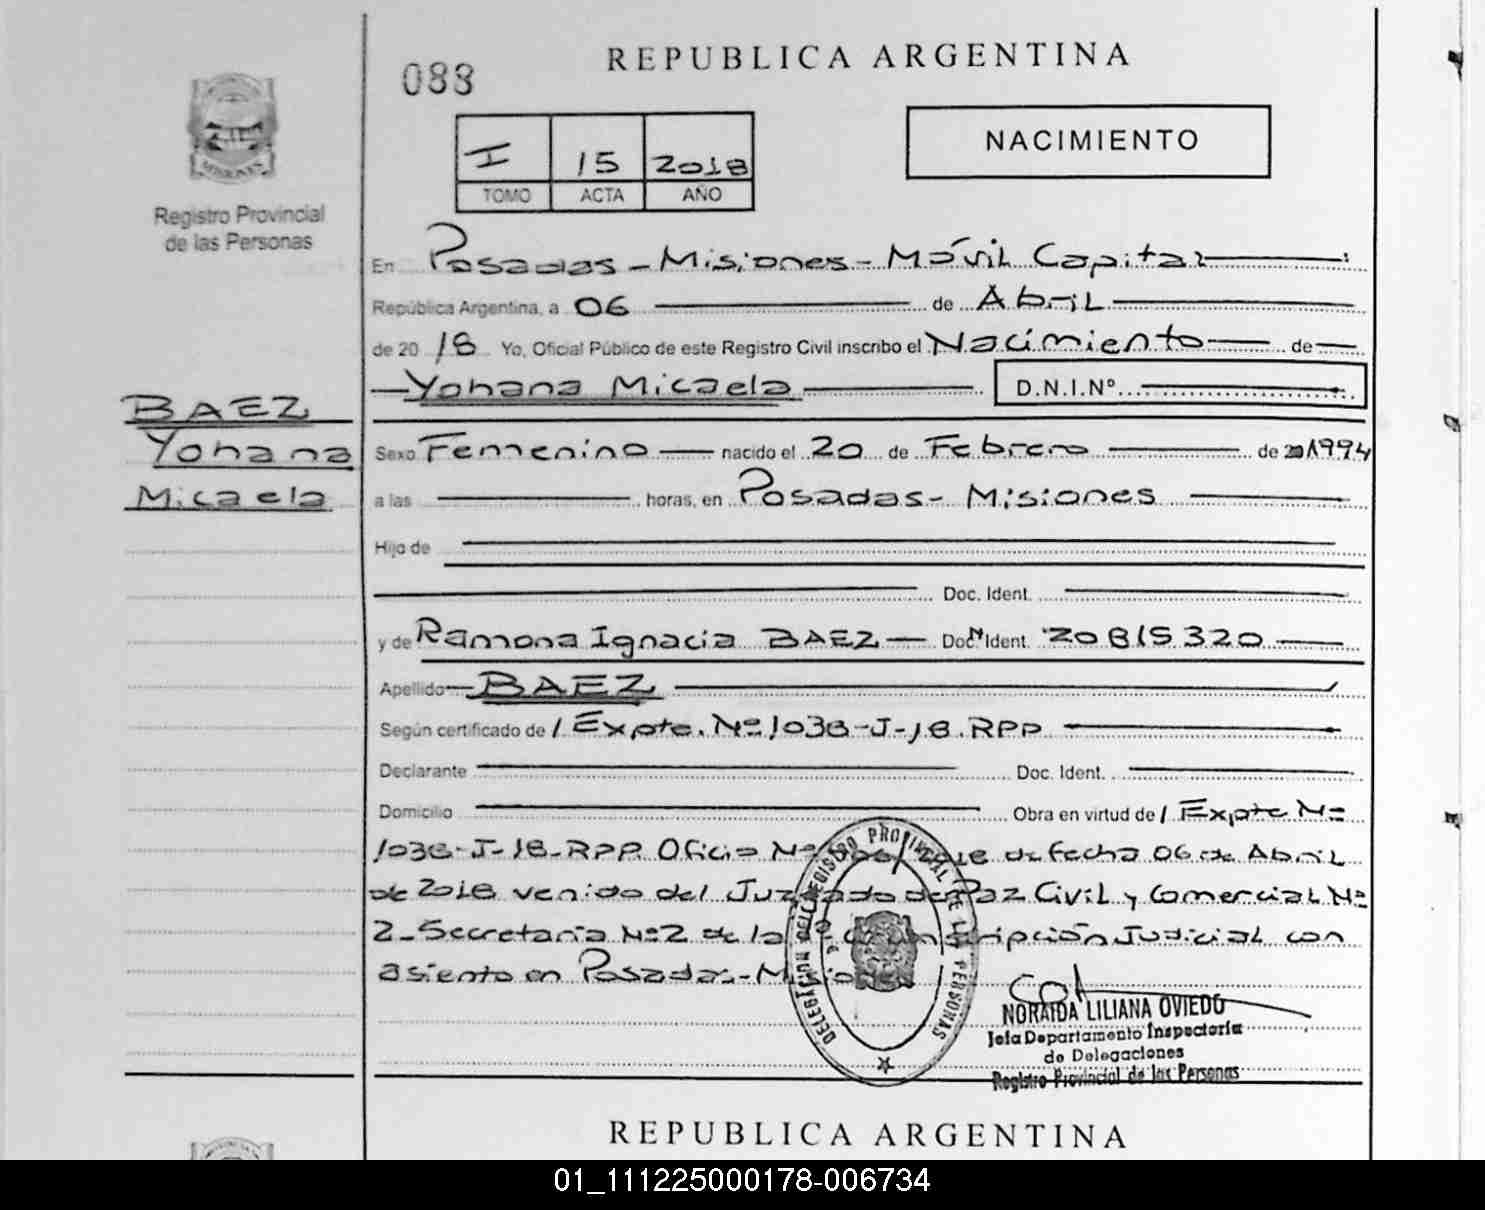 REPUBLICA ARGENTINA
088
NACIMIENTO
I 15 2018
TOMO ACTA AÑO
MISIONES
Registro Provincial
de las Personas
En Posadas - Misiones - Móvil Capital
República Argentina, a 06 de Abril
de 2018 Yo, Oficial Público de este Registro Civil inscribo el Nacimiento de
Yohana Micaela D.N.I.Nº
BAEZ
Yohana
Micaela
Sexo Femenino nacido el 20 de Febrero de 1994
a las horas, en Posadas - Misiones
Hijo de
Doc. Ident.
y de Ramona Ignacia BAEZ Doc. Ident. 20815320
Apellido BAEZ
Según certificado de / Expte. Nº 1038-J-18. RPP
Declarante Doc. Ident.
Domicilio Obra en virtud de / Expte Nº
1038-J-18-RPP. Oficio Nº 2018 de fecha 06 de Abril
de 2018 venido del Juzgado de Paz Civil y Comercial Nº
2 - Secretaría Nº 2 de la Circunscripción Judicial con
asiento en Posadas - Misiones
DELEGACION DEL REGISTRO PROVINCIAL DE LAS PERSONAS
NORAIDA LILIANA OVIEDO
Jefa Departamento Inspectoría
de Delegaciones
Registro Provincial de las Personas
REPUBLICA ARGENTINA
01_111225000178-006734